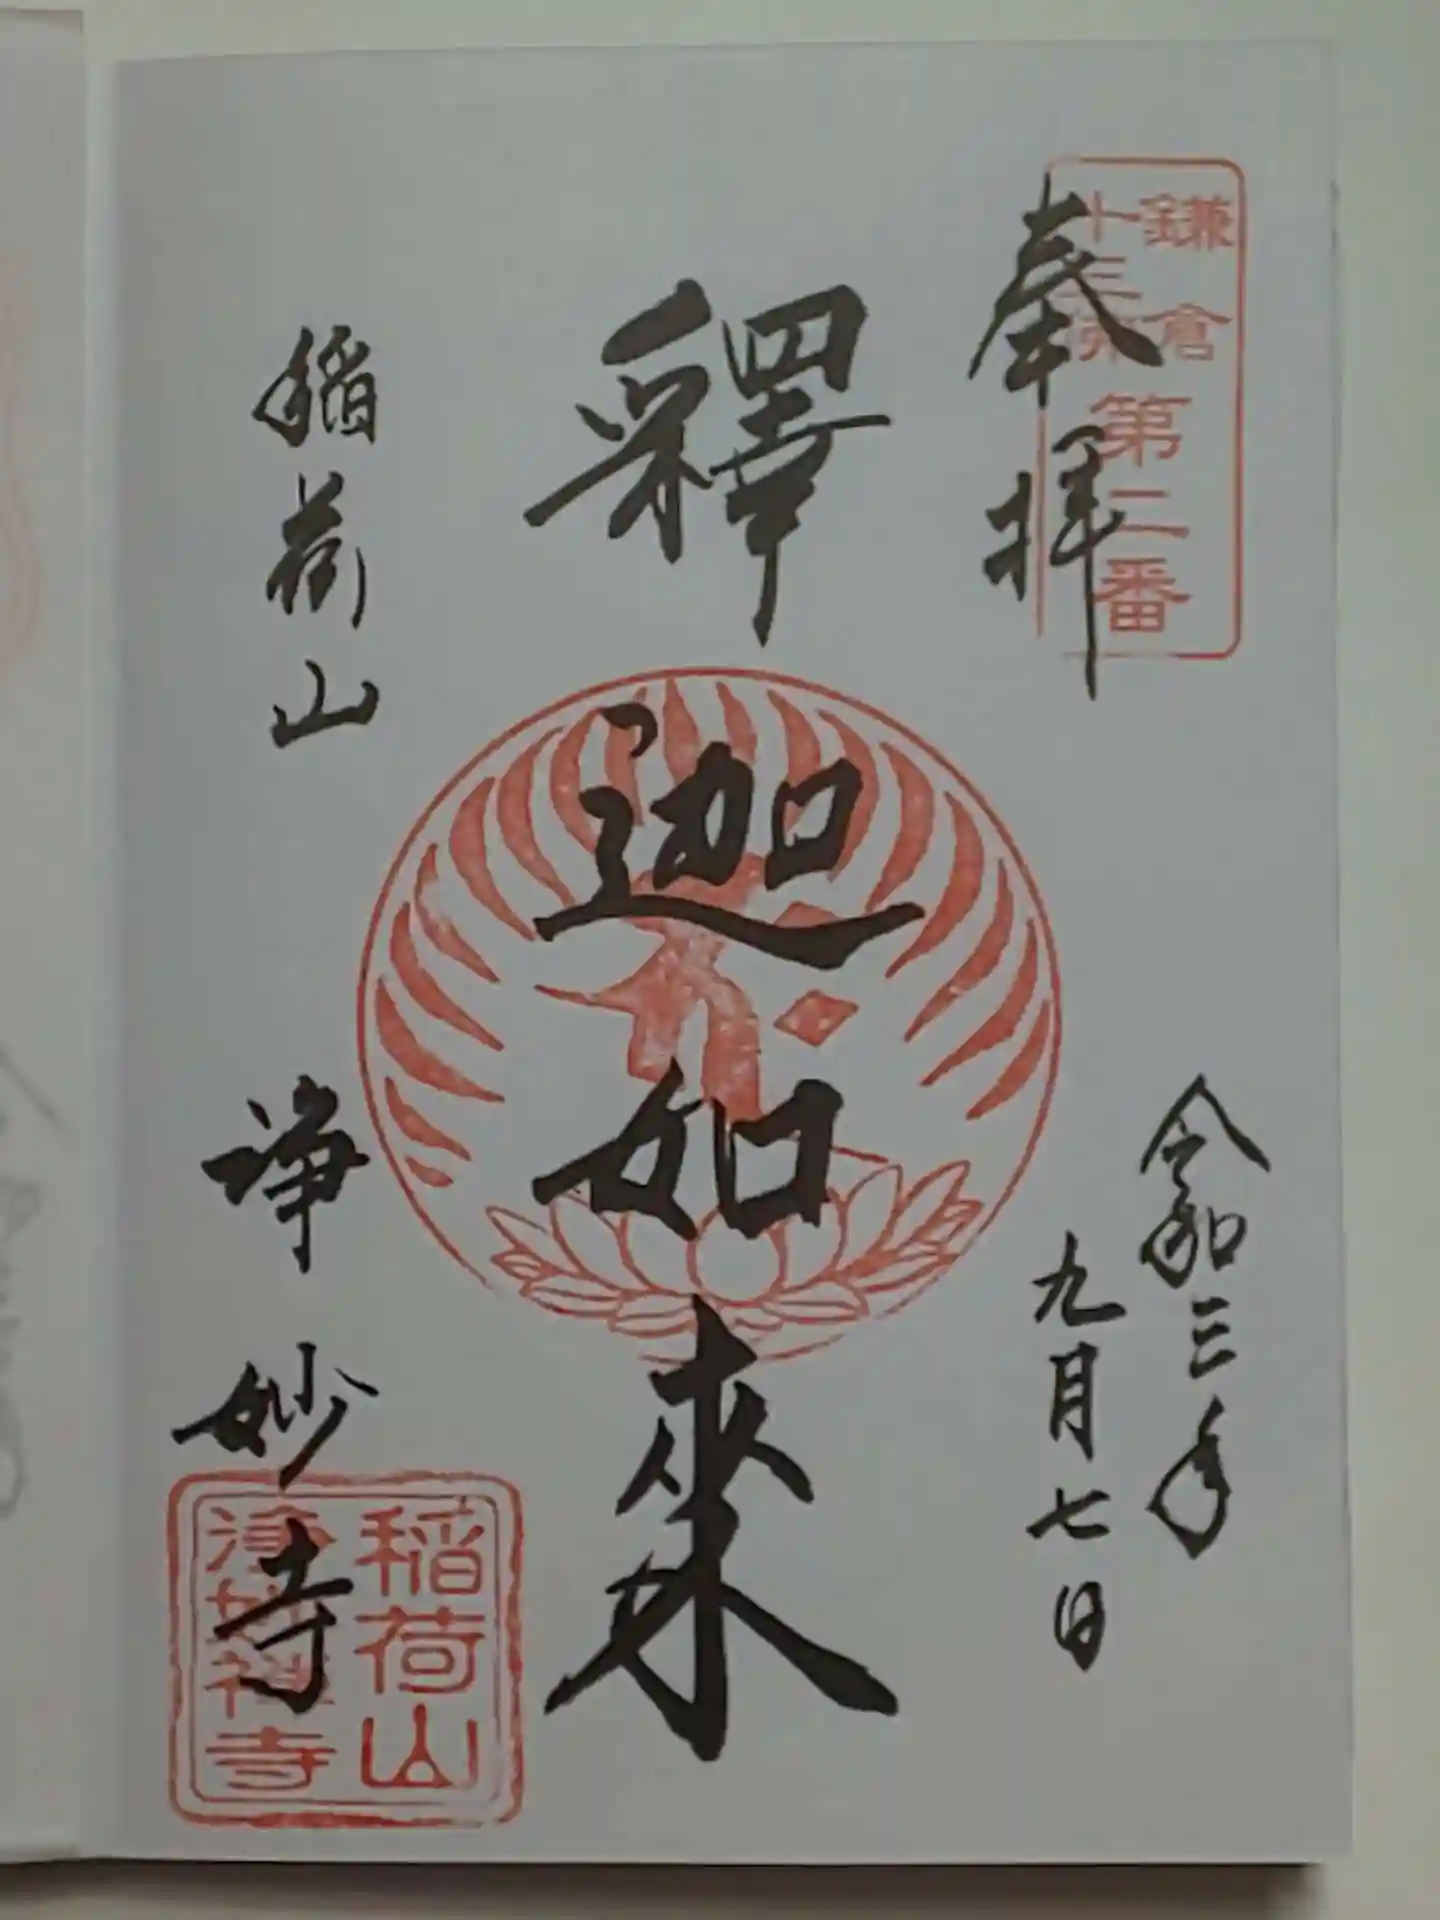 鎌倉
十三佛
第二番
奉拝
令和三年
九月七日
釋迦如来
稲荷山
浄妙寺
稲荷山
浄妙禅寺